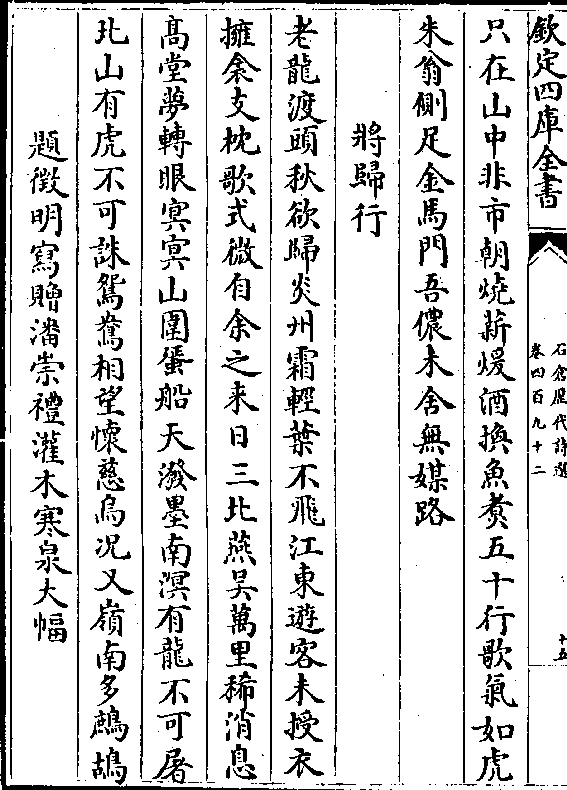 欽定四庫全書
石倉歷代詩選
卷四百九十二
十五
只在山中非市朝燒薪煖酒換魚煑五十行歌氣如虎
朱翁側足金馬門吾儂未舍無媒路
將歸行
老龍渡頭秋欲歸炎州霜輕葉不飛江東遊客未授衣
擁衾支枕歌式微自余之来日三北燕吴萬里稀消息
髙堂夢轉眼㝠㝠山圍蜑船天潑墨南溟有龍不可屠
北山有虎不可誅鴛鴦相望懷慈烏况又嶺南多鷓鴣
題徵明寫贈潘崇禮灌木寒泉大幅